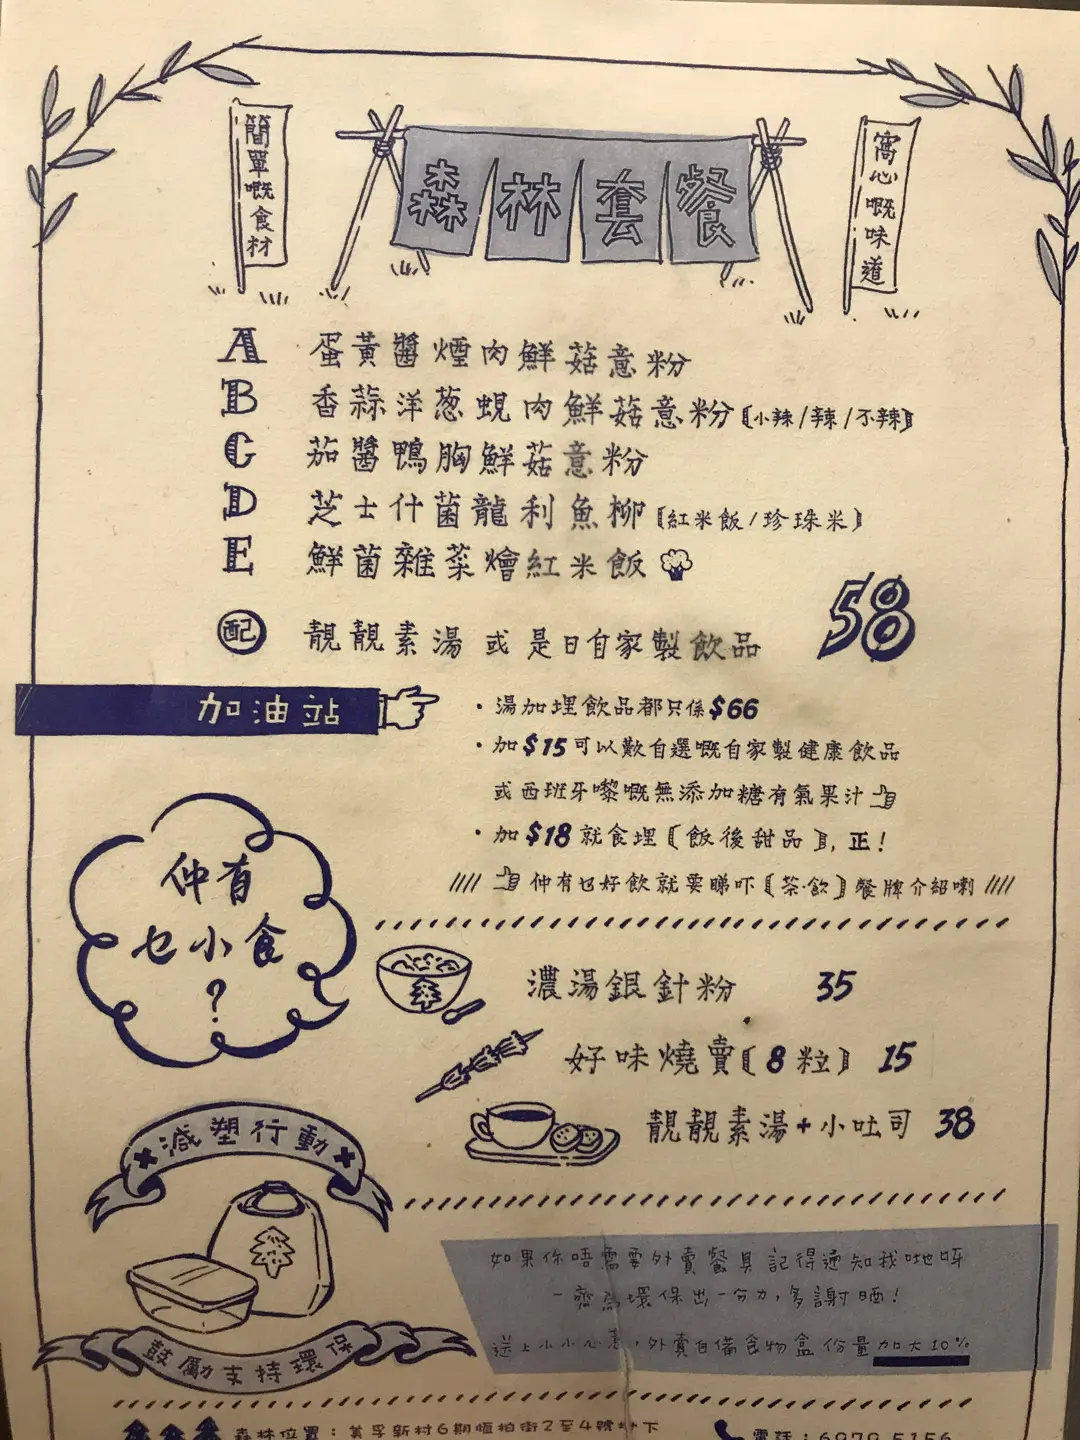 簡單嘅食材
森林套餐
窩心嘅味道
A 蛋黃醬煙肉鮮菇意粉
B 香蒜洋葱蜆肉鮮菇意粉【小辣/辣/不辣】
C 茄醬鴨胸鮮菇意粉
D 芝士什菌龍利魚柳【紅米飯/珍珠米】
E 鮮菌雜菜燴紅米飯
配 靚靚素湯 或 是日自家製飲品 58
加油站
・湯加埋飲品都只係$66
・加$15可以歎自選嘅自家製健康飲品
或西班牙嚟嘅無添加糖有氣果汁
・加$18就食埋【飯後甜品】, 正!
仲有乜好飲就要睇吓【茶·飲】餐牌介紹喇
仲有
乜小食
?
濃湯銀針粉 35
好味燒賣【8粒】 15
靚靚素湯+小吐司 38
減塑行動
鼓勵支持環保
如果你唔需要外賣餐具記得通知我哋呀
一齊為環保出一分力,多謝晒!
送上小小心意,外賣自備食物盒份量加大10%
森林位置:美孚新村6期恒柏街2至4號地下
電話:6979 5156